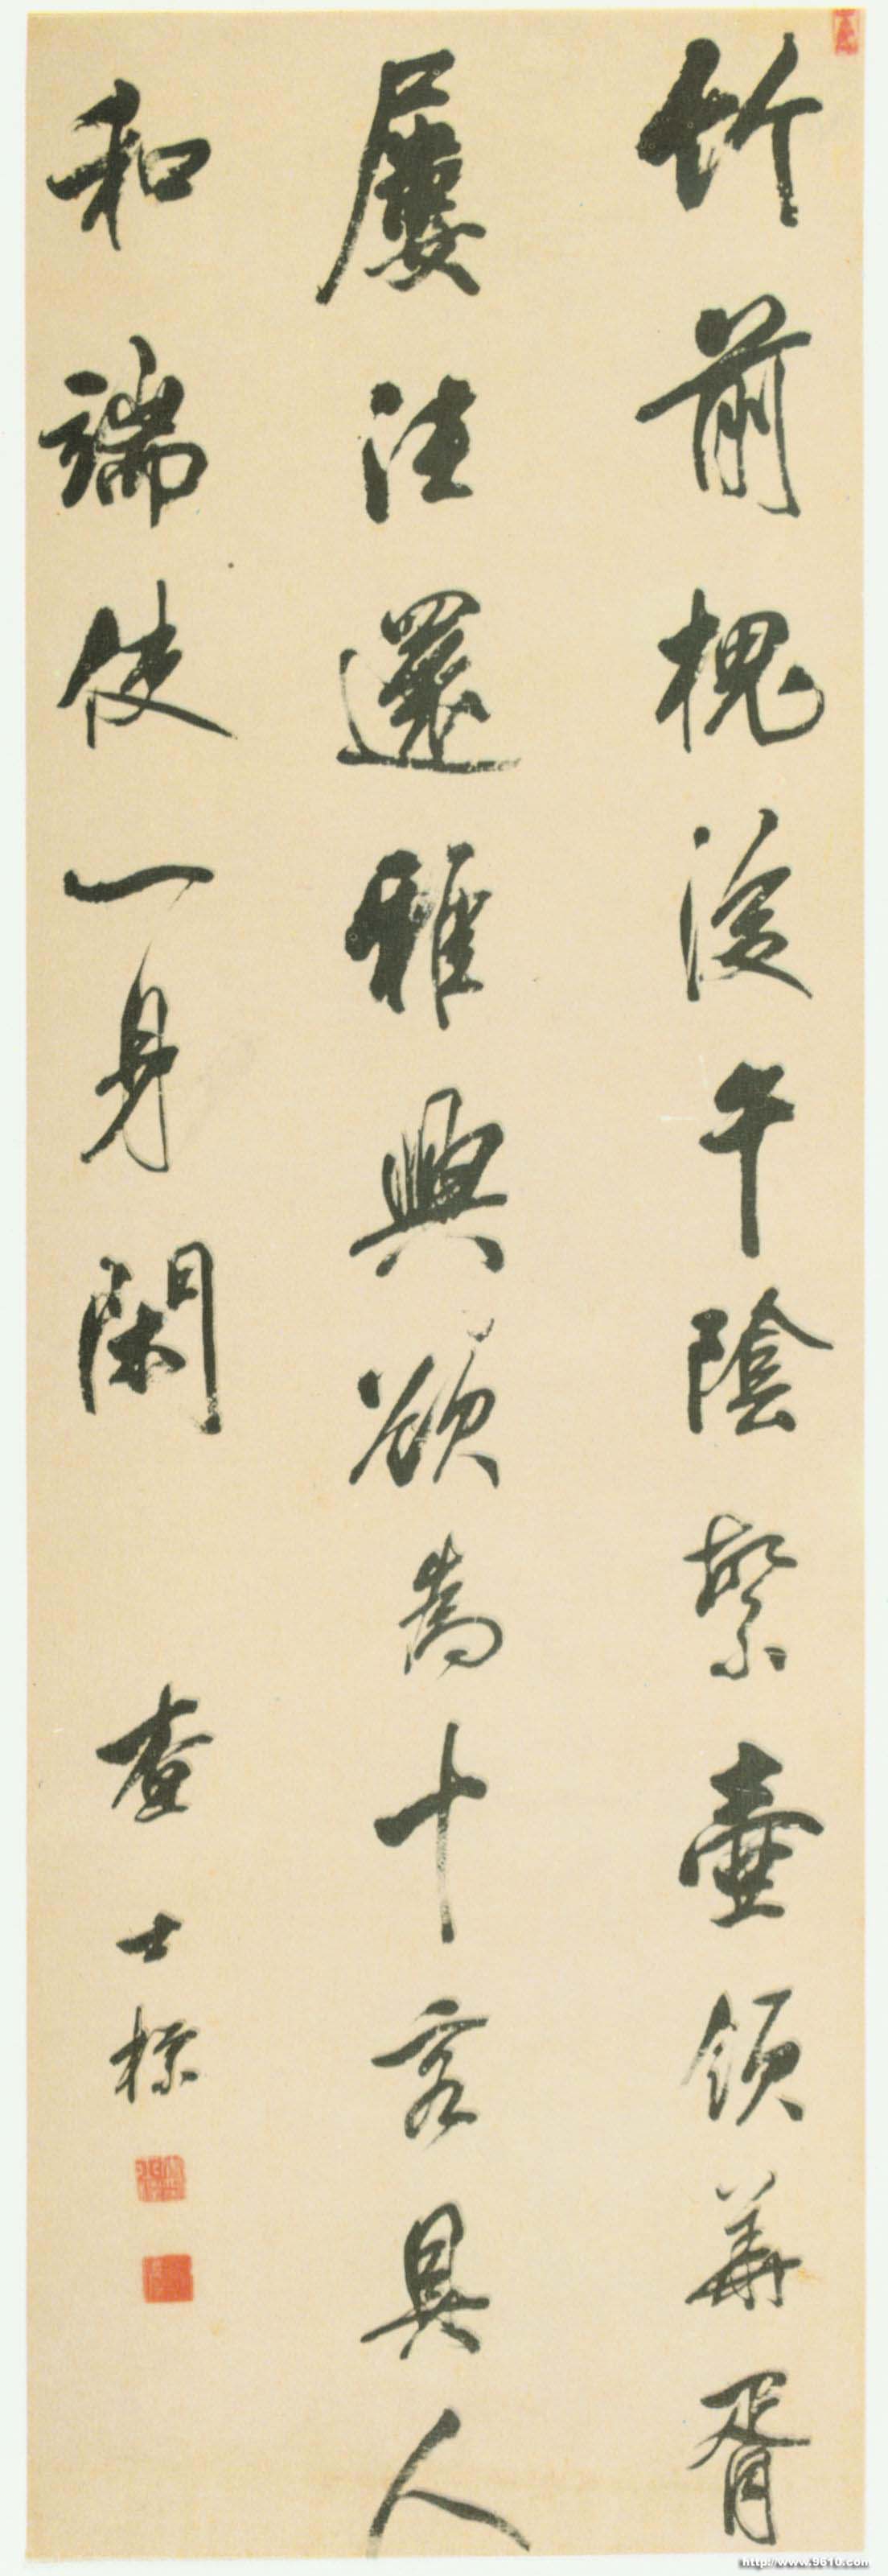 竹前槐後午陰繁壺領華胥
屢往還雅興欲為十客具人
和端使一身閑
查士標
http://www.9610.com